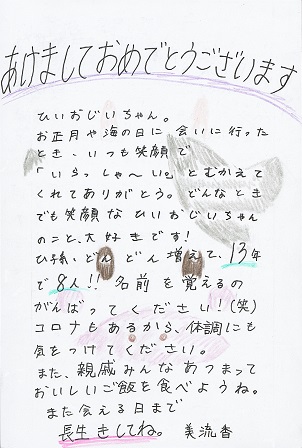 あけましておめでとうございます
ひいおじいちゃん。
お正月や海の日に会いに行った
とき、いつも笑顔で
「いらっしゃ〜い。」とむかえて
くれてありがとう。どんなとき
でも笑顔なひいおじいちゃん
のこと、大好きです!
ひ孫、どんどん増えて、13年
で8人!!名前を覚えるの
がんばってください!(笑)
コロナもあるから、体調にも
気をつけてください。
また、親戚みんなあつまって
おいしいご飯を食べようね。
また会える日まで
長生きしてね。 美流香